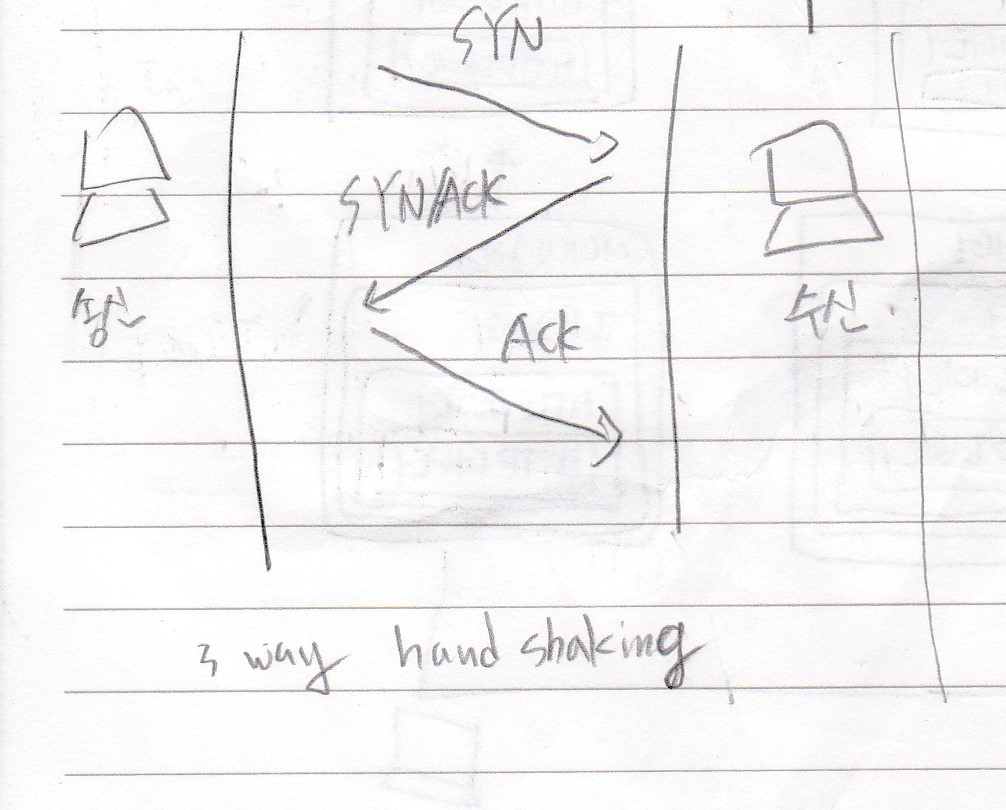 SYN
SYN/ACK
송신
수신.
ACK
3 way hand shaking